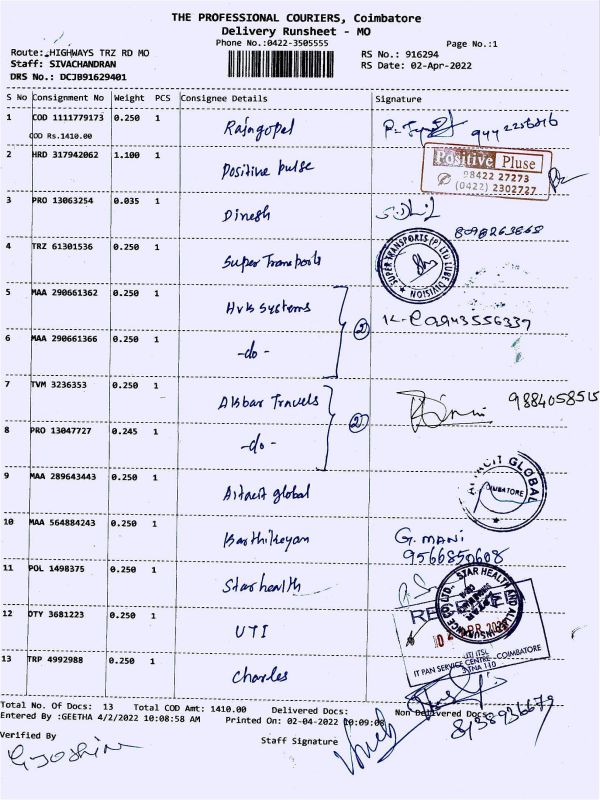 THE PROFESSIONAL COURIERS, Coimbatore
Delivery Runsheet - MO
Phone No.:0422-3505555
Page No.:1
Route: HIGHWAYS TRZ RD MO
RS No.: 916294
Staff: SIVACHANDRAN
RS Date: 02-Apr-2022
DRS No.: DCJB91629401
S No Consignment No Weight PCS Consignee Details Signature
1 COD 1111779173 0.250 1 Rajagopal
COD Rs.1410.00
2 HRD 317942062 1.100 1 Positive pulse
Positive Pluse
98422 27273
(0422) 2302727
3 PRO 13063254 0.035 1 Dinesh
4 TRZ 61301536 0.250 1 Super Transports
SUPER TRANSPORTS (P) LTD LUBE DIVISION
5 MAA 290661362 0.250 1 Hvk systems
2
6 MAA 290661366 0.250 1 -do-
7 TVM 3236353 0.250 1 Akbar Travels
9884058515
2
8 PRO 13047727 0.245 1 -do-
9 MAA 289643443 0.250 1 Aitacit global
GLOBAL
COIMBATORE
10 MAA 564884243 0.250 1 Karthikeyan G. MANI
9566850608
11 POL 1498375 0.250 1 Star health
STAR HEALTH AND ALLIED INSURANCE CO LTD
12 OTY 3681223 0.250 1 UTI
APR 2022
UTI ITSL
IT PAN SERVICE CENTRE COIMBATORE
13 TRP 4992988 0.250 1 Charles
Total No. Of Docs: 13 Total COD Amt: 1410.00 Delivered Docs: Non Delivered Docs:
Entered By :GEETHA 4/2/2022 10:08:58 AM Printed On: 02-04-2022 10:09:08
8138936679
Verified By
Staff Signature